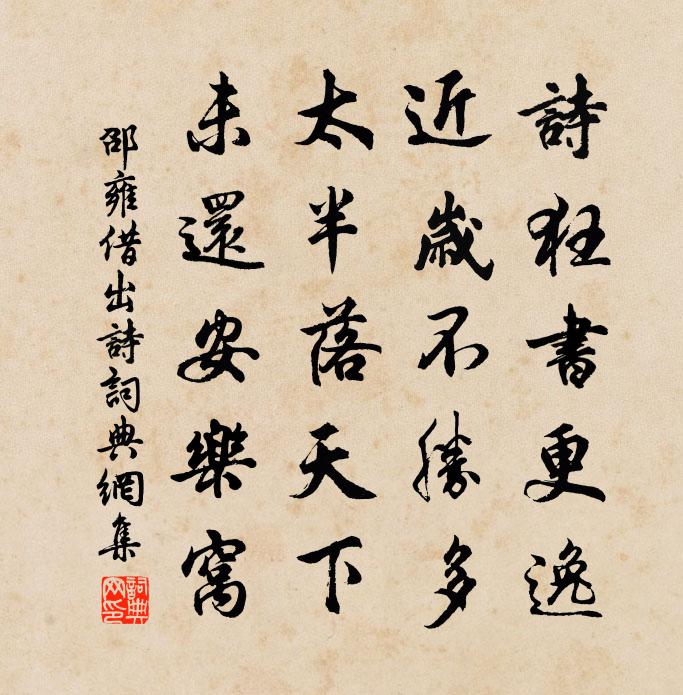 詩狂書更逸
近歲不勝多
太半落天下
未還安樂窩
邵雍借出詩詞典網集
詞典網印